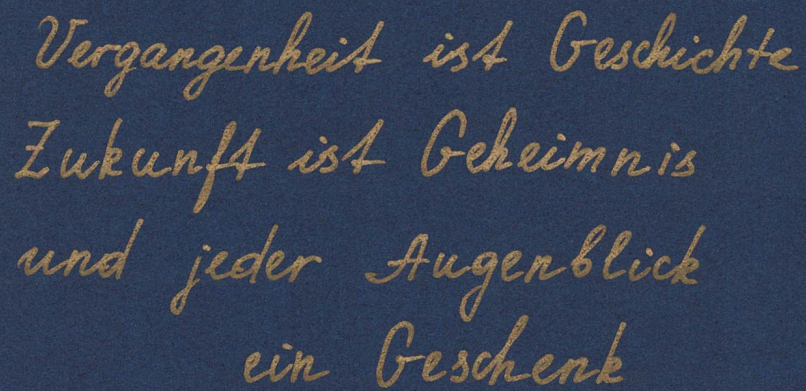 Vergangenheit ist Geschichte
Zukunft ist Geheimnis
und jeder Augenblick
ein Geschenk